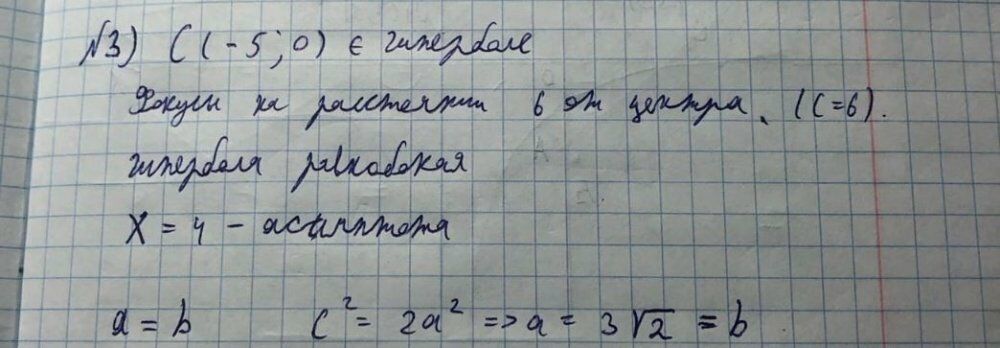 №3) C(-5; 0) ∈ гиперболе
Фокусы на расстоянии 6 от центра. (C=6).
гипербола равнобокая
X = 4 - асимптота
a = b C² = 2a² => a = 3√2 = b